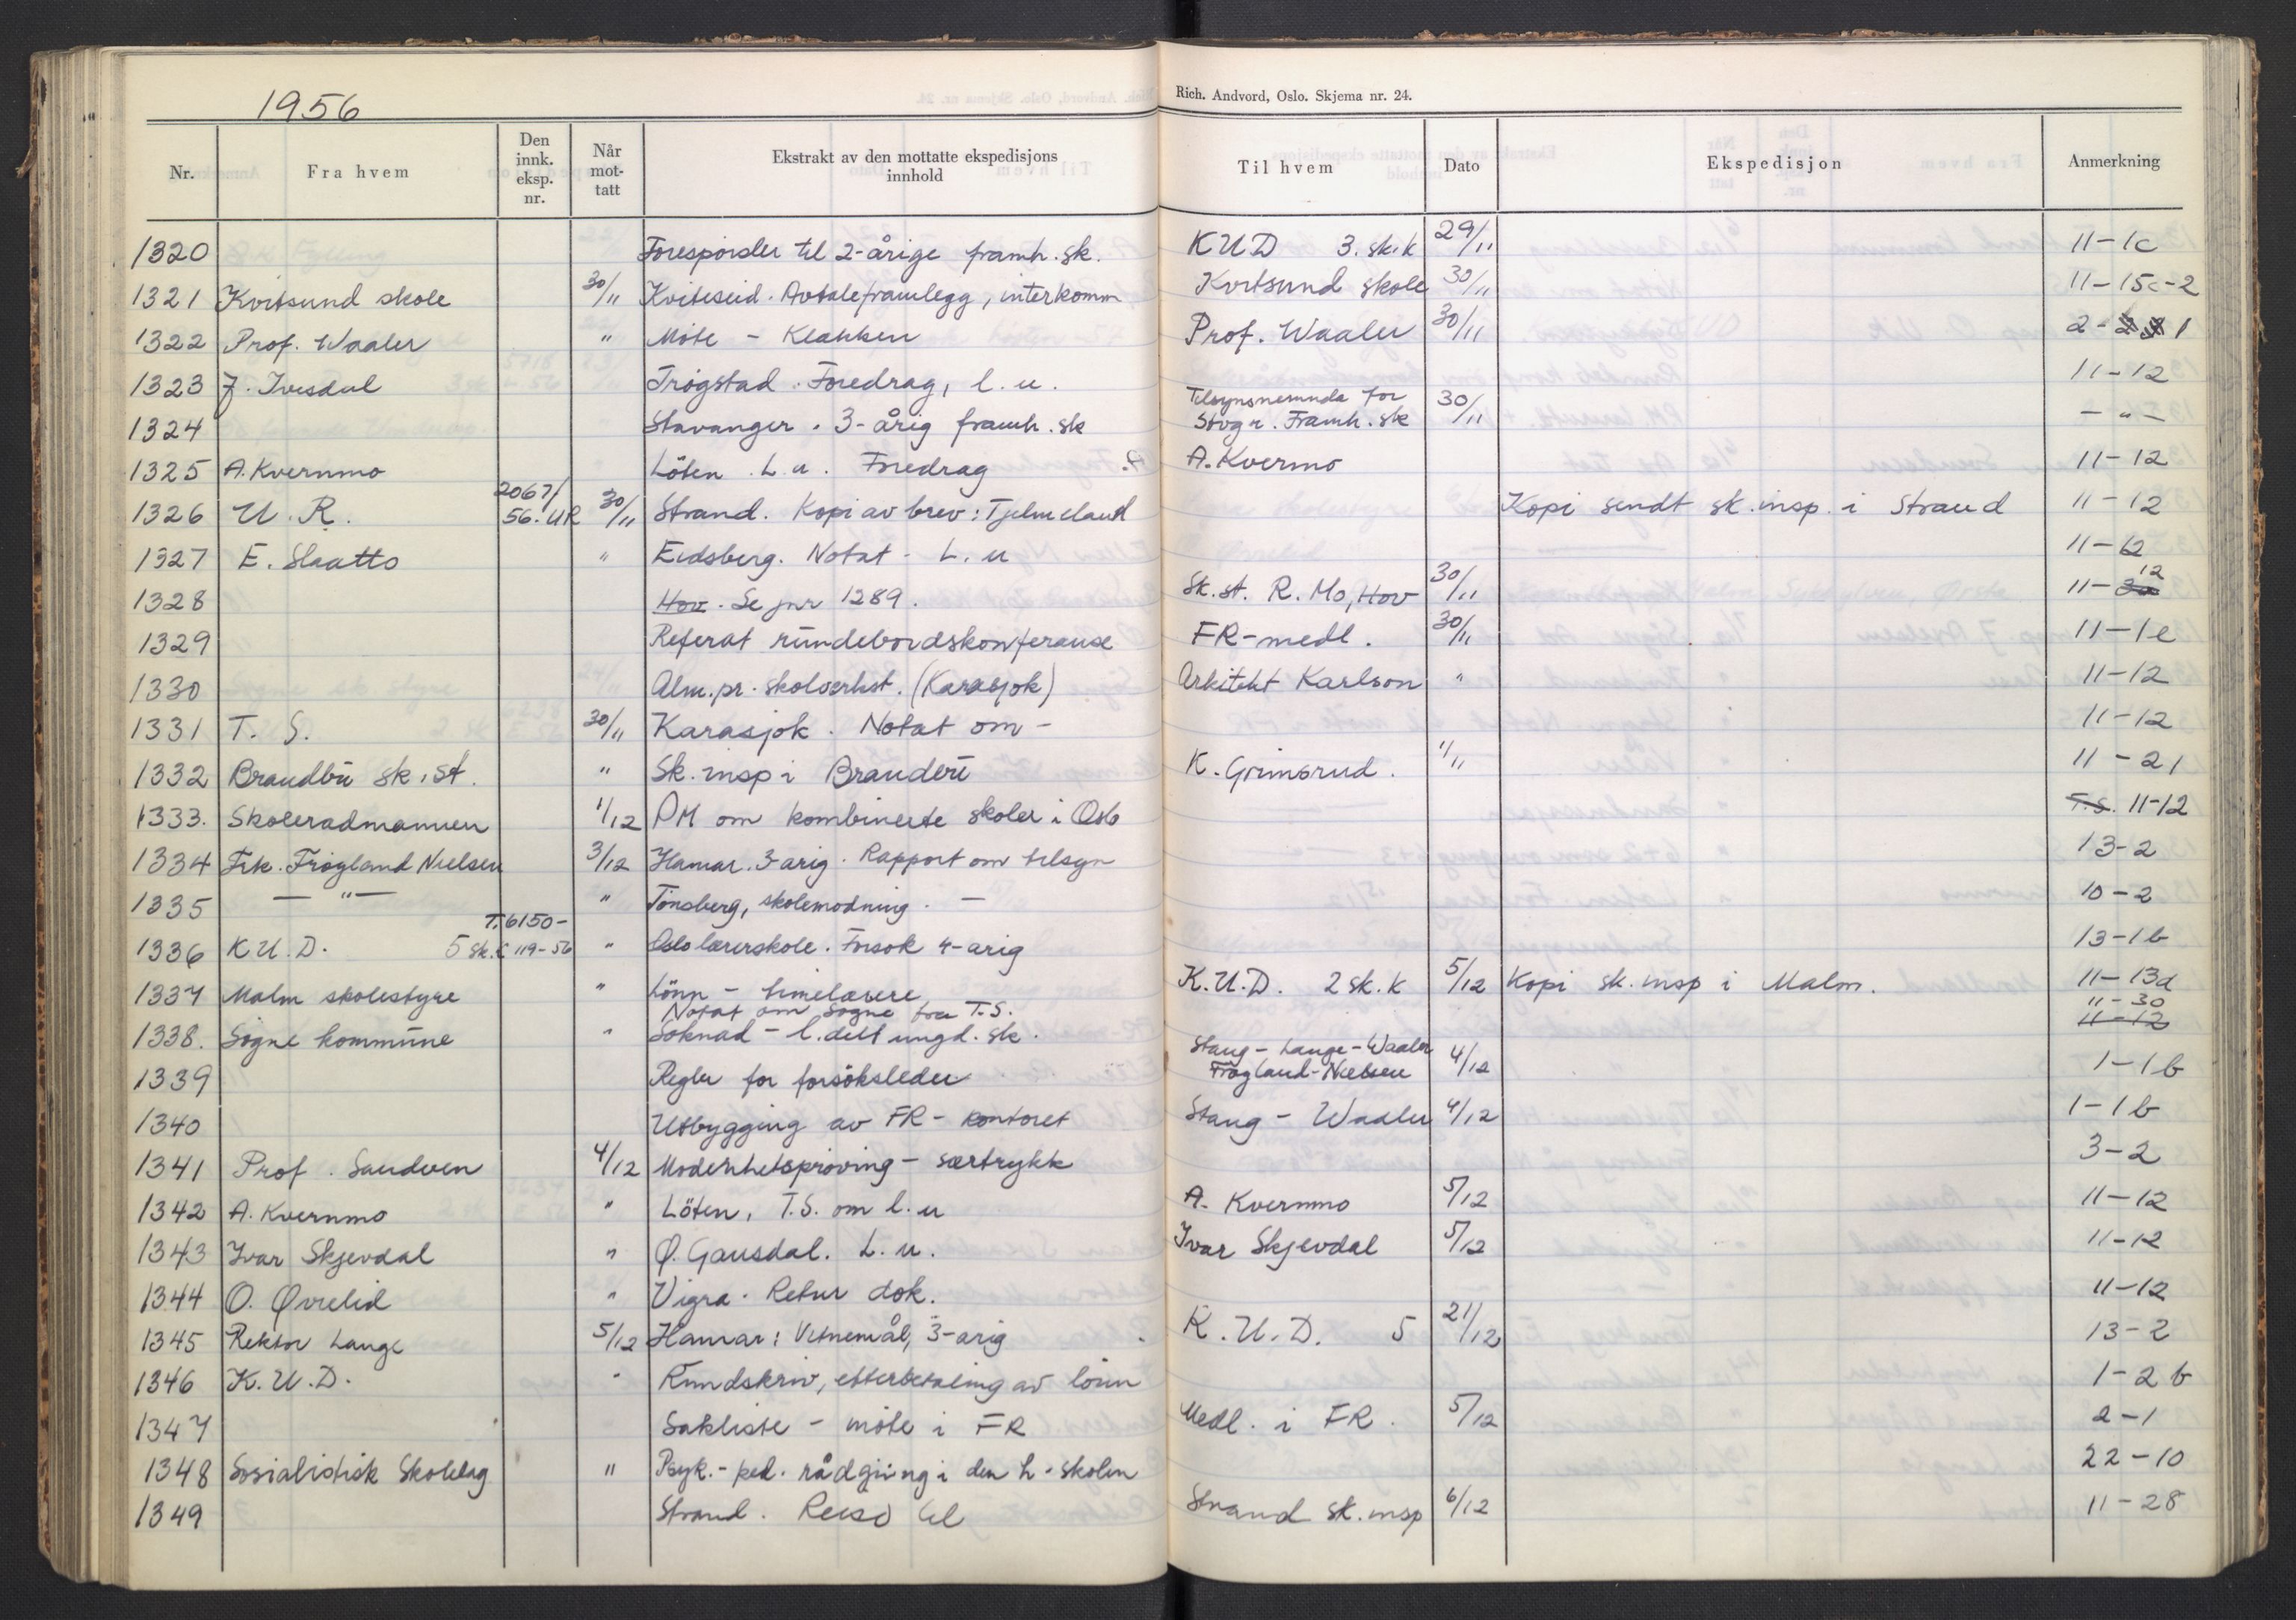 1956
Rich. Andvord, Oslo. Skjema nr. 24.
Nr. Fra hvem Den innk. eksp. nr. Når mot-tatt Ekstrakt av den mottatte ekspedisjons innhold Til hvem Dato Ekspedisjon Anmerkning
1320 Forespörsler til 2-årige framh. sk. KUD 3. sk.k 29/11 11-1c
1321 Kvitsund skole 30/11 Kviteseid. Avtaleframlegg, interkomm Kvitsund skole 30/11 11-15c-2
1322 Prof. Waaler " Möte - Klækken Prof. Waaler 30/11 2-1
1323 J. Ivesdal Trögstad. Foredrag, l.u. 11-12
1324 Stavanger. 3-årig framh. sk Tilsynsnemnda for Stvgr. Framh. sk 30/11 - " -
1325 A. Kvernmo Löten. L.u. Foredrag A. Kvermo 11-12
1326 U.R. 2067/56. UR 30/11 Strand. Kopi av brev: Tjelmeland Kopi sendt sk.insp. i Strand 11-12
1327 E. Slaatto " Eidsberg. Notat - L.u 11-12
1328 Hov. Se jnr 1289. Sk.st. R. Mo, Hov 30/11 11-12
1329 Referat rundebordskonferanse FR-medl. 30/11 11-1e
1330 Alm.pr. skoleverkst. (Karasjok) Arkitekt Karlson " 11-12
1331 T.S. 30/11 Karasjok. Notat om - 11-12
1332 Brandbu sk.st. " Sk.insp i Brandbu K. Grimsrud. 1/11 11-21
1333. Skoleradmannen 1/12 PM om kombinerte skoler i Oslo T.S. 11-12
1334 Frk. Frögland Nielsen 3/12 Hamar. 3-arig. Rapport om tilsyn 13-2
1335 - " - " Tönsberg, skolemodning. - 10-2
1336 K.U.D. 5 sk.k T.6150-119-56 " Oslo lærerskole. Forsök 4-arig 13-1b
1337 Malm skolestyre " Lönn - timelærere K.U.D. 2 sk.k 5/12 Kopi sk.insp i Malm. 11-13d
Notat om Sögne fra T.S. 11-30
1338. Sögne kommune " Söknad - l.delt ungd.sk. 11-12
1339 Regler for forsöksleder Stang - Lange - Waaler Frögland-Nielsen 4/12 1-1b
1340 Utbygging av FR-kontoret Stang - Waaler 4/12 1-1b
1341 Prof. Sandven 4/12 Modenhetspröving - særtrykk 3-2
1342 A. Kvernmo " Löten, T.S. om l.u A. Kvernmo 5/12 11-12
1343 Ivar Skjevdal " Ø. Gausdal. L.u. Ivar Skjevdal 5/12 11-12
1344 O. Øvrelid " Vigra. Retur dok. 11-12
1345 Rektor Lange 5/12 Hamar: Vitnemål, 3-arig K.U.D. 5 21/12 13-2
1346 K.U.D. " Rundskriv, etterbetaling av lönn 1-2b
1347 Sakliste - möte i FR Medl. i FR. 5/12 2-1
1348 Sosialistisk Skolelag " Psyk.-ped. rådgiving i den h. skolen 22-10
1349 Strand. Reise til Strand sk.insp 6/12 11-28